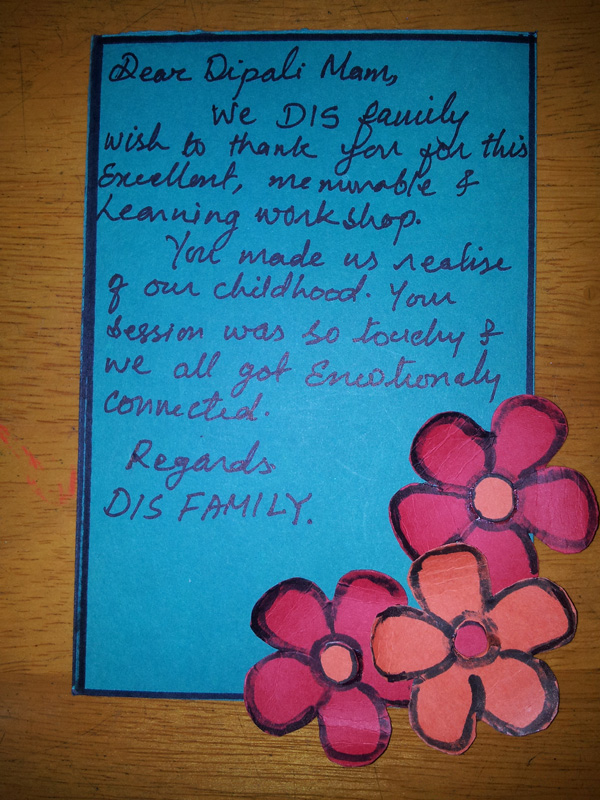 Dear Dipali Mam,
We DIS family
wish to thank you for this
Excellent, memorable &
Learning workshop.
You made us realise
of our childhood. Your
session was so touchy &
we all got Emotionaly
connected.
Regards
DIS FAMILY.